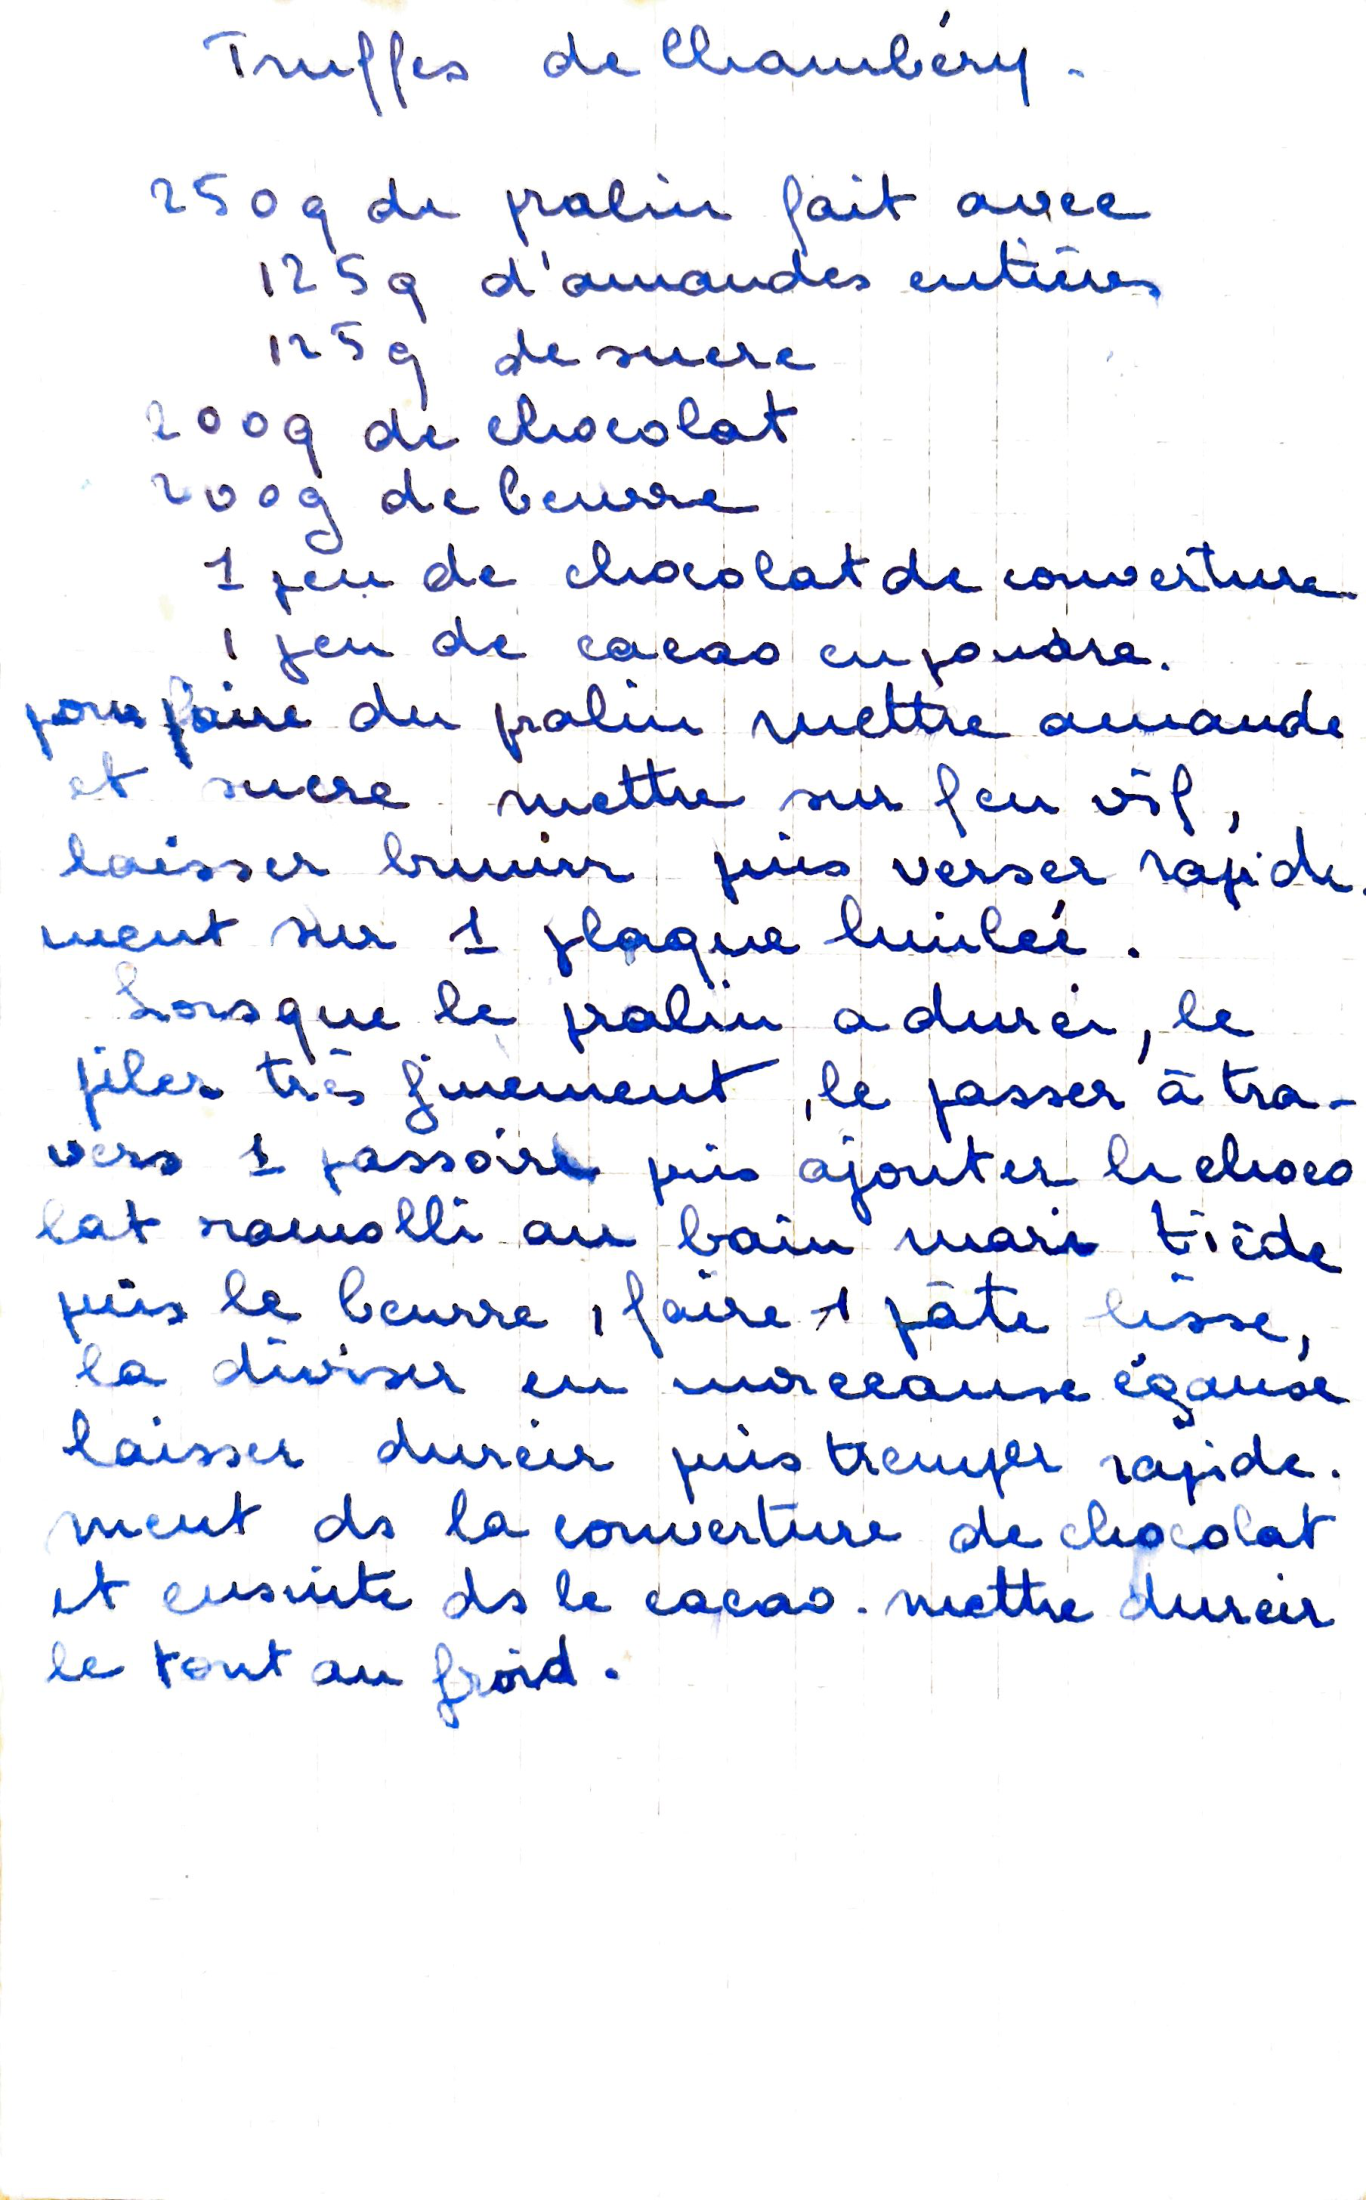 Truffes de Chambéry.
250g de pralin fait avec
125g d'amandes entières
125g de sucre
200g de chocolat
200g de beurre
1 peu de chocolat de couverture
1 peu de cacao en poudre.
pour faire du pralin mettre amande
et sucre mettre sur feu vif,
laisser brunir puis verser rapide.
ment sur 1 plaque huilée.
Lorsque le pralin a durci, le
piler très finement, le passer à tra-
vers 1 passoire puis ajouter le choco
lat ramolli au bain mari tiède
puis le beurre, faire 1 pâte lisse,
la diviser en morceaux égaux
laisser durcir puis tremper rapide.
ment ds la couverture de chocolat
et ensuite ds le cacao. mettre durcir
le tout au froid.